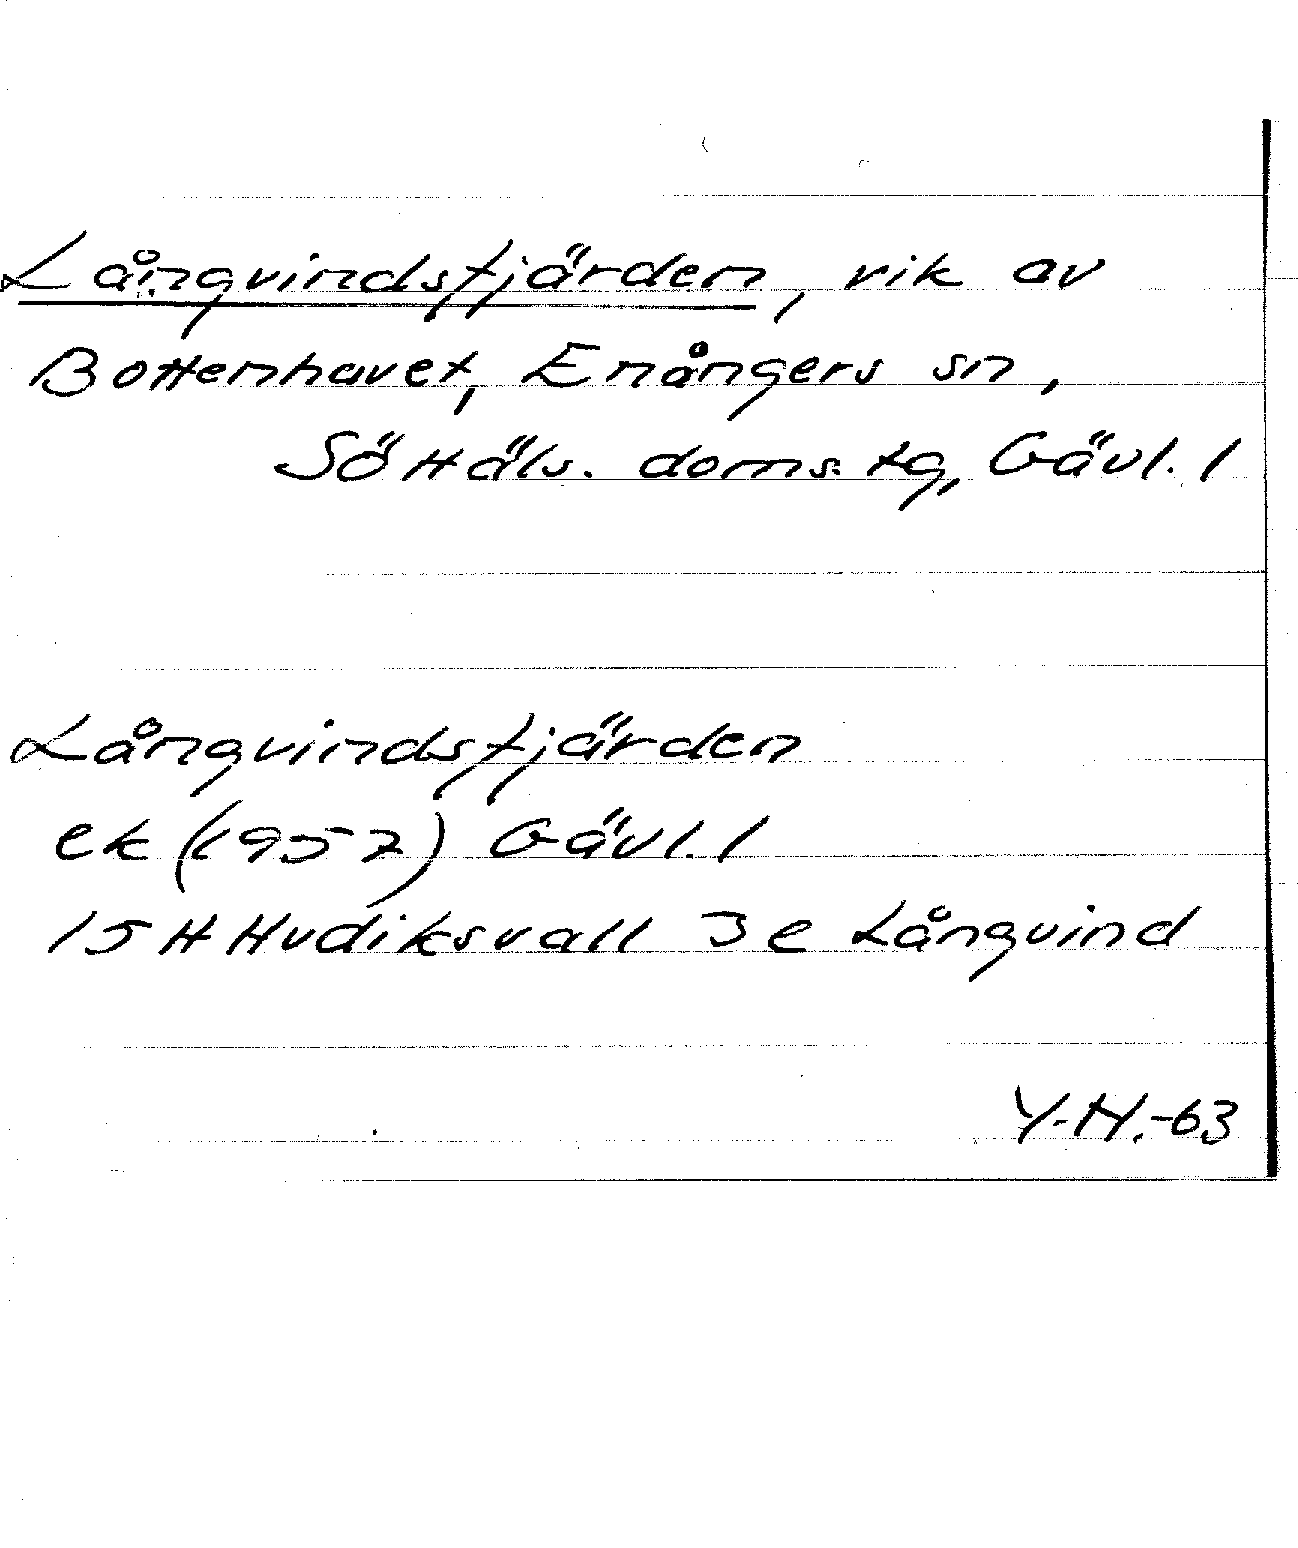 Långvindsfjärden, vik av
Bottenhavet, Enångers sn,
SöHäls. doms. tg, Gävl. l
Långvindsfjärden
ek (1957) Gävl. l
15H Hudiksvall 3e Långvind
Y.H.-63